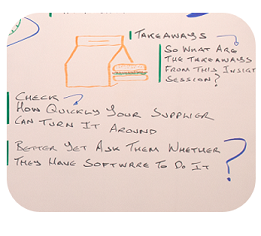 TAKEAWAYS
SO WHAT ARE
THE TAKEAWAYS
FROM THIS INSIGHT
SESSION?
CHECK
HOW QUICKLY YOUR SUPPLIER
CAN TURN IT AROUND
BETTER YET ASK THEM WHETHER
THEY HAVE SOFTWARE TO DO IT ?